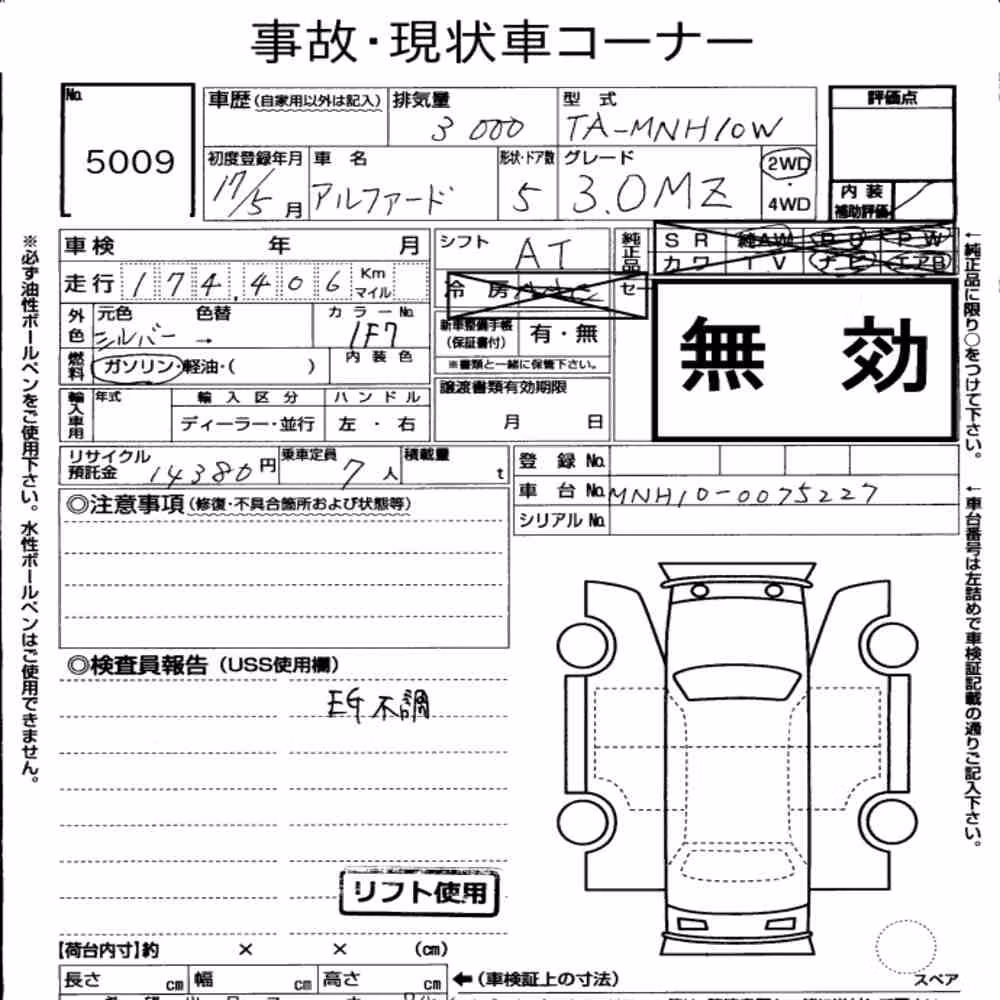 事故・現状車コーナー
No. 5009
車歴(自家用以外は記入) 排気量 3000 型式 TA-MNH10W
評価点
初度登録年月 17/5月 車名 アルファード 形状・ドア数 5 グレード 3.0MZ 2WD・4WD
内装補助評価
※必ず油性ボールペンをご使用下さい。水性ボールペンはご使用できません。
車検 年 月
走行 174,406 Km マイル
外色 元色 シルバー 色替 → カラーNo. 1F7
燃料 ガソリン・軽油・( ) 内装色
輸入車用 年式 輸入区分 ディーラー・並行 ハンドル 左・右
シフト AT
冷房
新車整備手帳(保証書付) 有・無
※書類と一緒に保管下さい。
譲渡書類有効期限
月 日
純正品 SR 純AW PW
カワ TV ナビ エアB
セ
無効
←純正品に限り○をつけて下さい。
リサイクル預託金 14380円 乗車定員 7人 積載量 t
登録No.
車台No. MNH10-0075227
シリアルNo.
←車台番号は左詰めで車検証記載の通りご記入下さい。
◎注意事項(修復・不具合箇所および状態等)
◎検査員報告(USS使用欄)
EG不調
リフト使用
【荷台内寸】約 × × (cm)
長さ cm 幅 cm 高さ cm ←(車検証上の寸法)
スペア